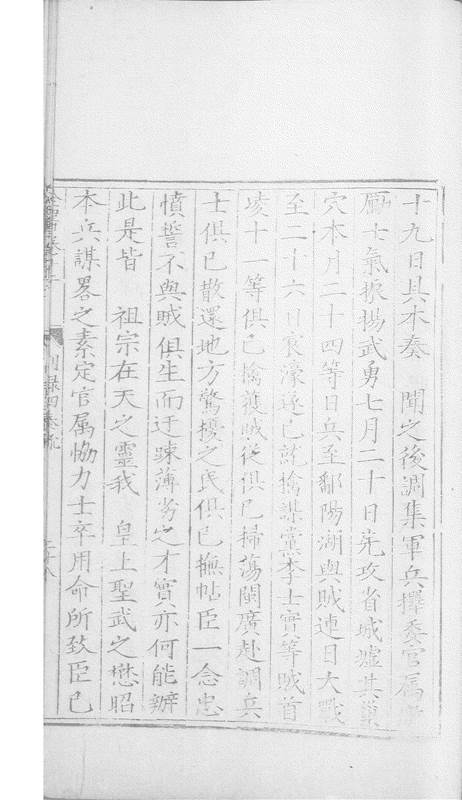 十九日具本奏　聞之後調集軍兵擇委官属
勵士氣振揚武勇七月二十日先攻省城墟其巢
穴本月二十四等日兵至鄱陽湖與賊連日大戰
至二十六日宸濠遂已就擒謀黨李士實等賊首
凌十一等俱已擒獲賊從俱已掃蕩閩廣赴調兵
士俱已散還地方驚擾之民俱已撫帖臣一念忠
憤誓不與賊俱生而迂踈薄劣之才實亦何能辦
此是皆　祖宗在天之靈我　皇上聖武之懋昭
本兵謀畧之素定官属恊力士卒用命所致臣已
別録四奏疏